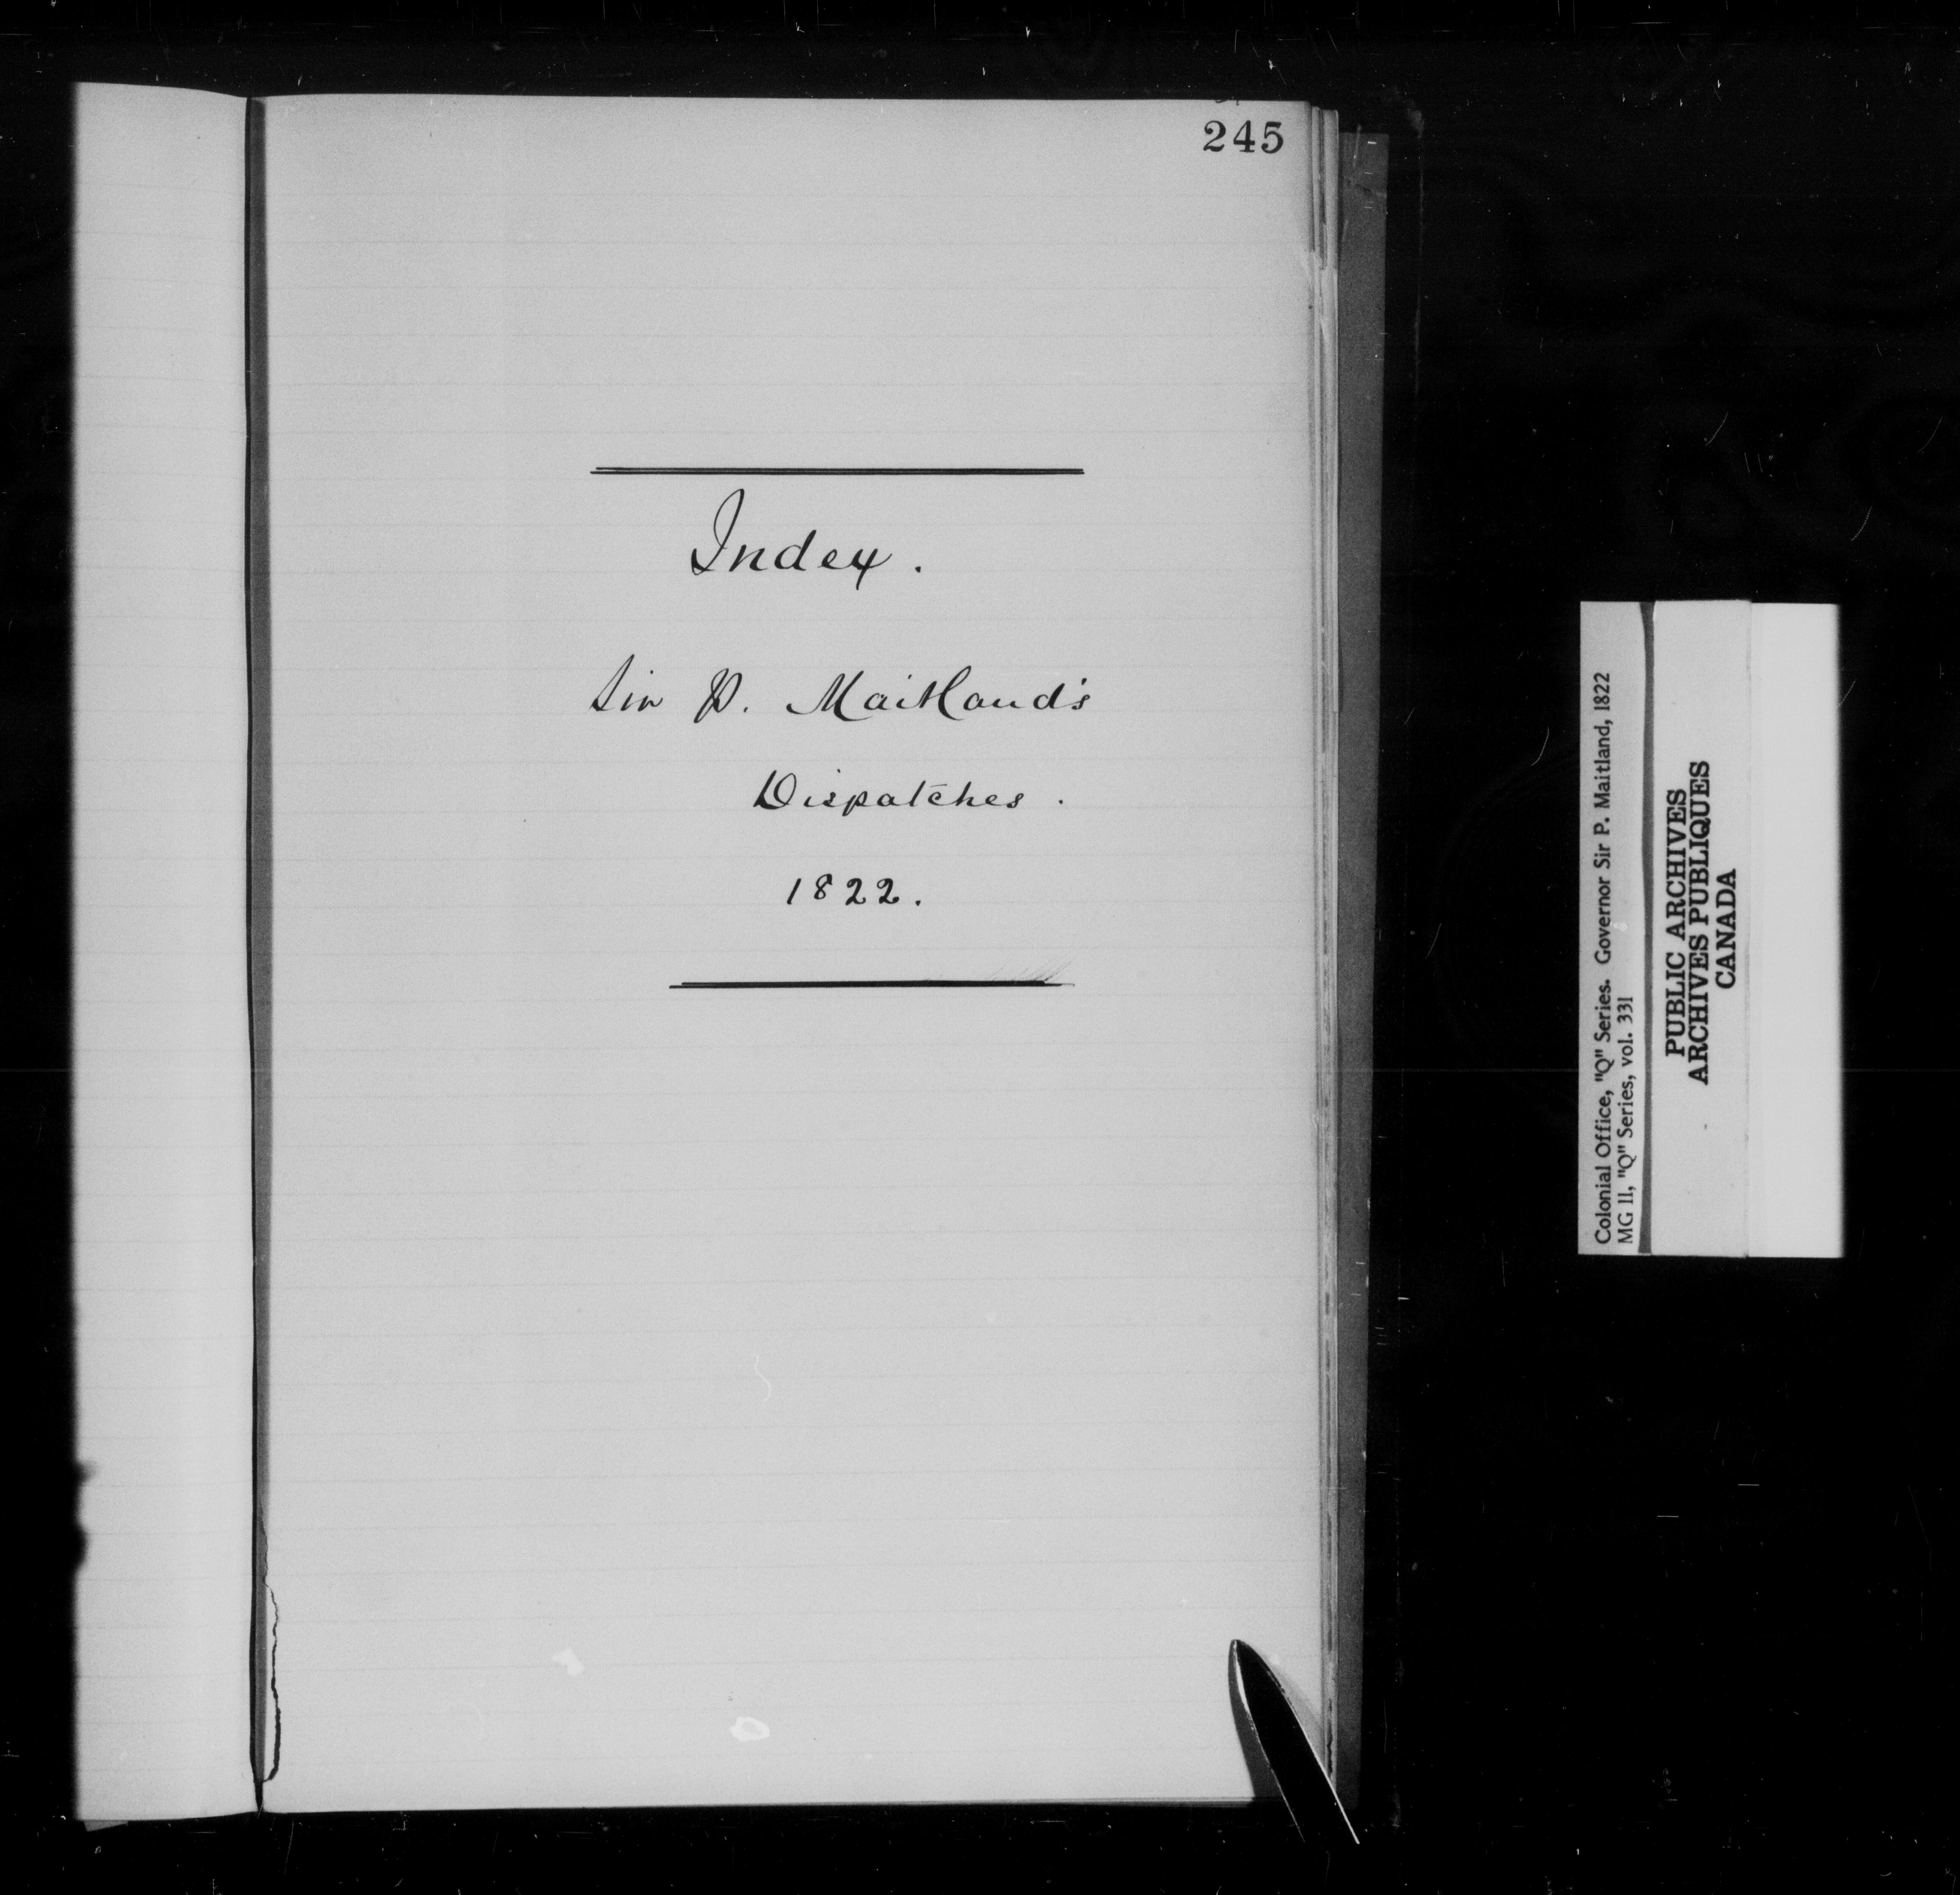 245
Index.
Sir P. Maitland's
Dispatches.
1822.
Colonial Office, "Q" Series. Governor Sir P. Maitland, 1822
MG 11, "Q" Series, vol. 331
PUBLIC ARCHIVES
ARCHIVES PUBLIQUES
CANADA